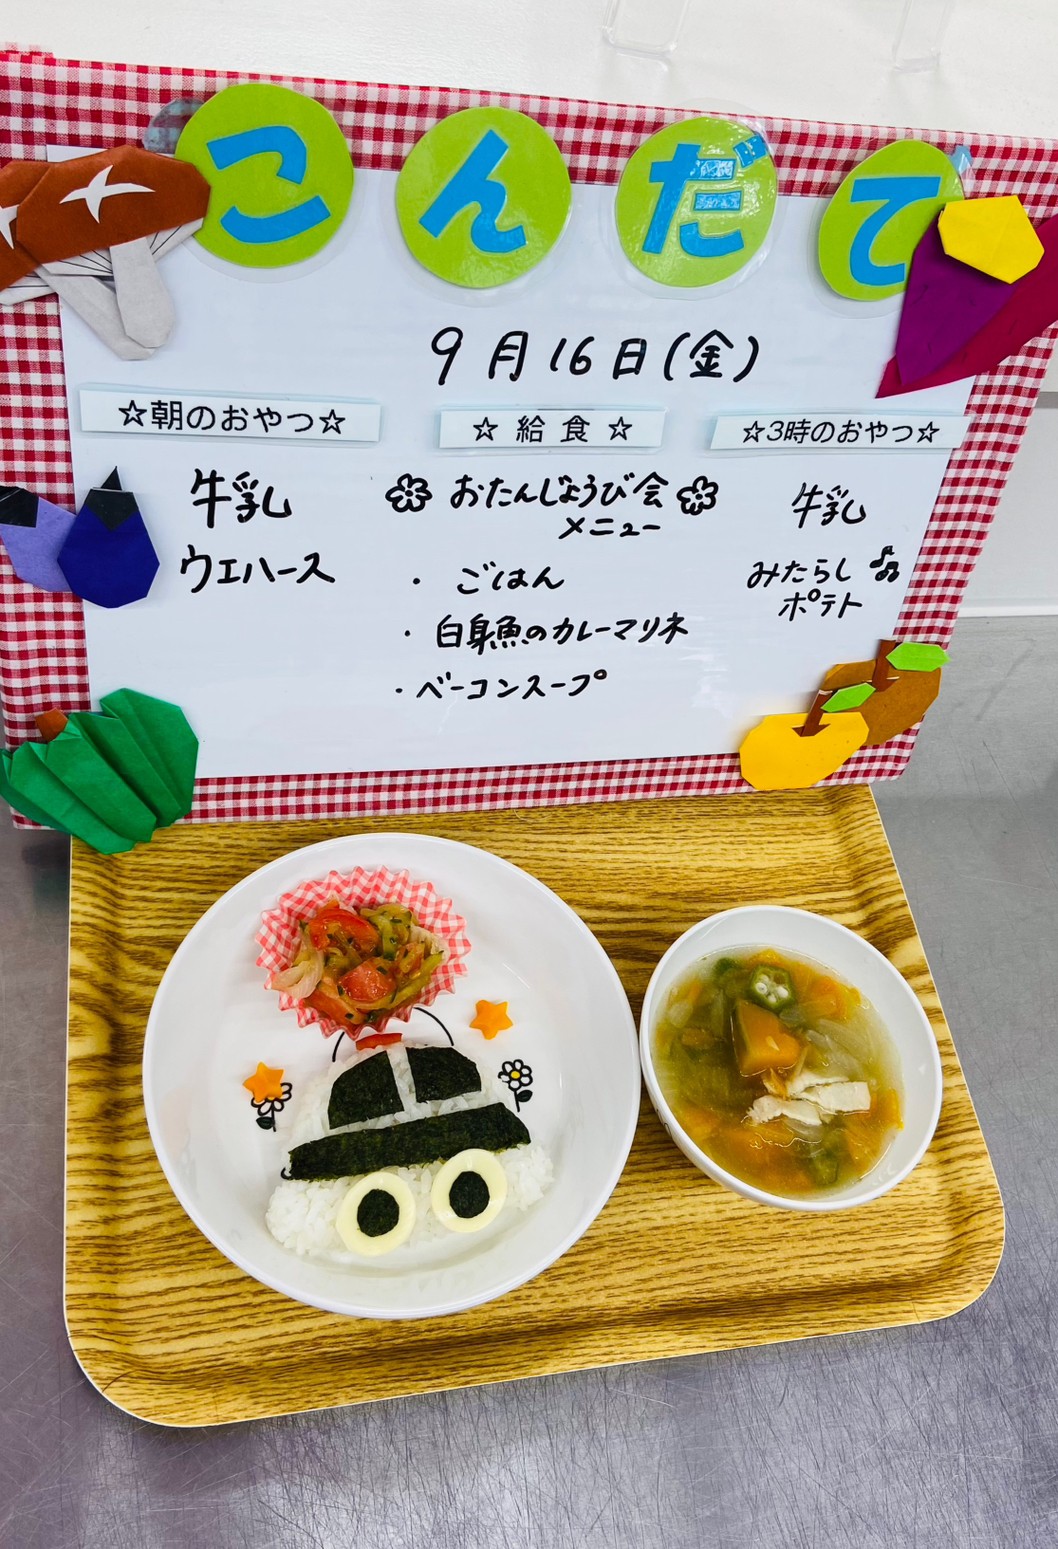 こんだて
9月16日(金)
☆朝のおやつ☆
牛乳
ウエハース
☆給食☆
おたんじょうび会
メニュー
・ごはん
・白身魚のカレーマリネ
・ベーコンスープ
☆3時のおやつ☆
牛乳
みたらし
ポテト